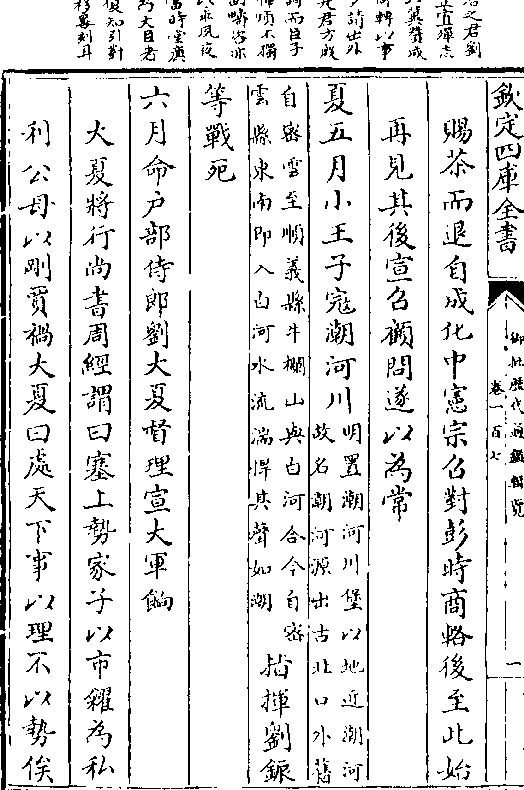 之君劉
宜殫志
冀贊成
輅以事
請出外
君方殷
而臣子
不獨
夙夜
當時堂廣
大臣者
知引對
刻耳
欽定四庫全書
御批歷代通鑑輯覽
卷一百七
一
賜茶而退自成化中憲宗召對彭時商輅後至此始
再見其後宣召顧問遂以為常
夏五月小王子寇潮河川
明置潮河川堡以地近潮河
故名潮河源出古北口外舊
自密雲至順義縣牛欄山與白河合今自密
雲縣東南即入白河水流湍悍其聲如潮
指揮劉鋠
等戰死
六月命戶部侍郎劉大夏督理宣大軍餉
大夏將行尚書周經謂曰塞上勢家子以市糴為私
利公毋以剛賈禍大夏曰處天下事以理不以勢俟